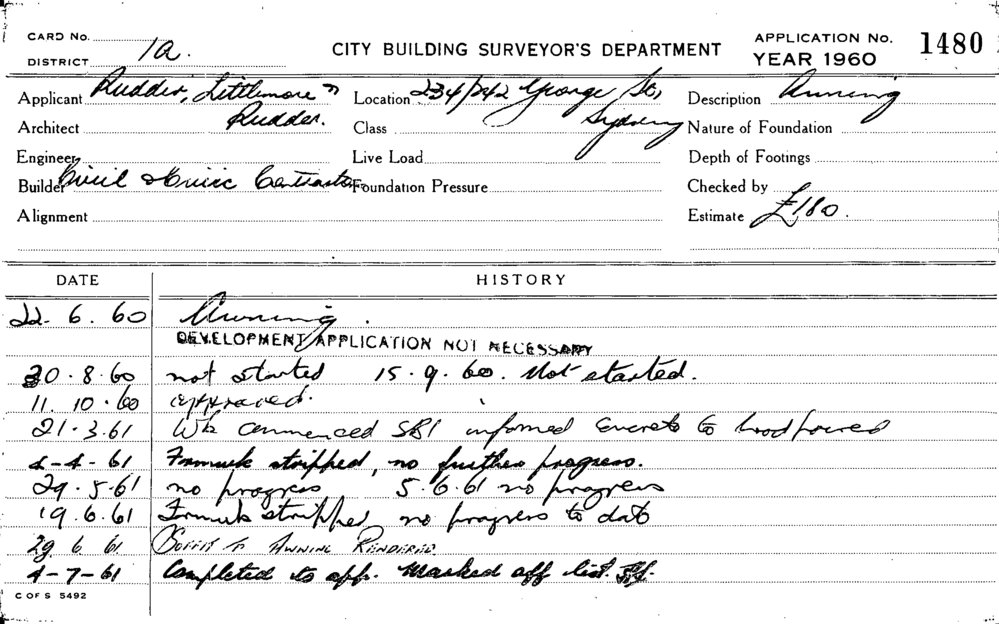 CARD No.
DISTRICT 1a.
CITY BUILDING SURVEYOR'S DEPARTMENT
APPLICATION No. 1480
YEAR 1960
Applicant Rudder, Littlemore & Rudder.
Location 234/242 George St, Sydney
Description Awning
Architect
Class
Nature of Foundation
Engineer
Live Load
Depth of Footings
Builder Civil & Civic Contractors
Foundation Pressure
Checked by
Alignment
Estimate £180.
DATE HISTORY
22. 6. 60 Awning.
DEVELOPMENT APPLICATION NOT NECESSARY
30. 8. 60 not started 15. 9. 60. Not started.
11. 10. 60 approved.
21. 3. 61 Wk commenced informed concrete to
4-4-61 Formwk stripped, no further progress.
29. 5. 61 no progress 5.6.61 no progress
19. 6. 61 Formwk stripped no progress to date
29 6 61 Soffit to Awning Rendered.
4-7-61 Completed to app. Marked off list.
C OF S 5492